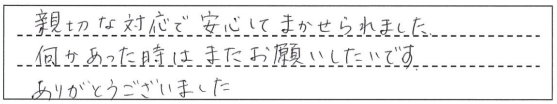 親切な対応で安心してまかせられました.
何かあった時はまたお願いしたいです.
ありがとうございました